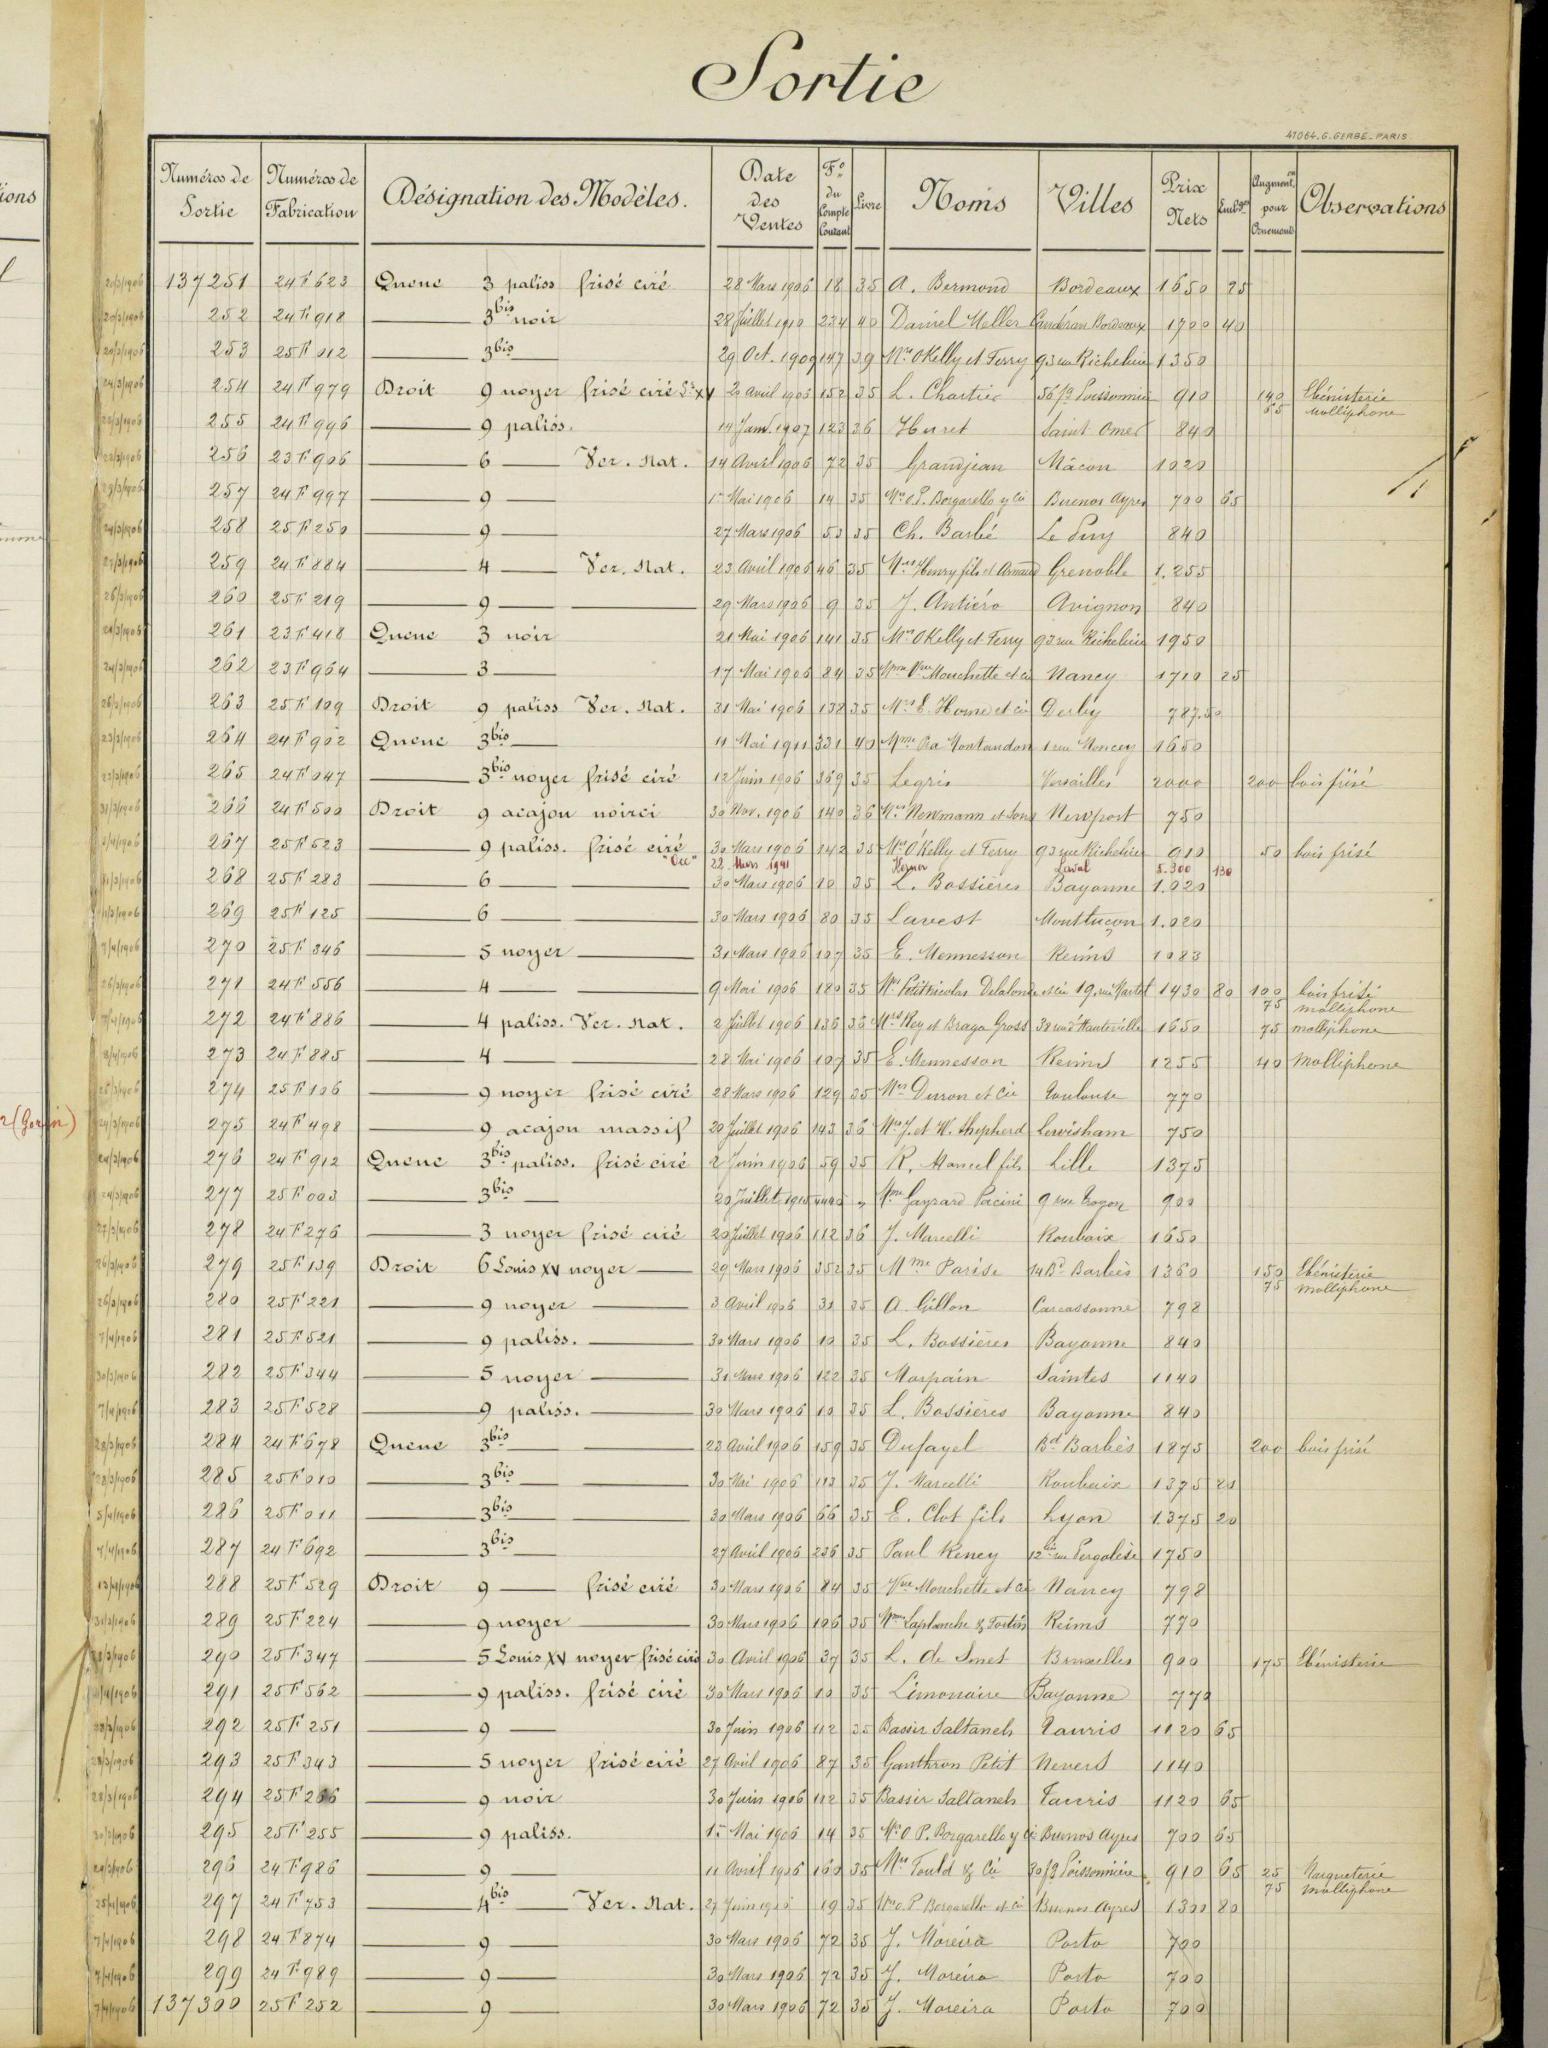 Sortie
47064. G. GERBE. PARIS.
Numéros de Sortie Numéros de Fabrication Désignation des Modèles. Date des Ventes F.º du Compte Courant Livre Noms Villes Prix Nets Emb.ge Augment.on pour Ornements Observations
137251 24F623 Queue 3 paliss frisé ciré 28 Mars 1906 18 35 A. Bermond Bordeaux 1650 25
252 24F918 3bis noir 28 Juillet 1910 234 40 Daniel Meller Caudéran Bordeaux 1700 40
253 25F012 3bis 29 Oct. 1909 147 39 Mrs O'Kelly et Ferry 93 rue Richelieu 1350
254 24F979 Droit 9 noyer frisé ciré Ls XV 2 Avril 1906 152 35 L. Chartier 56 fg Poissonnière 910 140 Ebénisterie
65 Molliphone
255 24F996 9 paliss. 14 Janv. 1907 123 36 Huret Saint Omer 840
256 23F906 6 Ver. Nat. 14 Avril 1906 72 35 Grandjean Mâcon 1020
257 24F997 9 1er Mai 1906 14 35 Mrs O.P. Borgarello y Cia Buenos Ayres 700 65
258 25F250 9 27 Mars 1906 53 35 Ch. Barbé Le Puy 840
259 24F884 4 Ver. Nat. 23 Avril 1906 46 35 Mrs Henry fils et Arnaud Grenoble 1.255
260 25F219 9 29 Mars 1906 9 35 J. Antiéro Avignon 840
261 23F418 Queue 3 noir 21 Mai 1906 141 35 Mrs O'Kelly et Ferry 93 rue Richelieu 1950
262 23F964 3 17 Mai 1906 84 35 Mme Vve Mouchette et Cie Nancy 1710 25
263 25F109 Droit 9 paliss Ver. Nat. 31 Mai 1906 138 35 Mrs E. Horne et Cie Derby 787.50
264 24F902 Queue 3bis 11 Mai 1911 331 40 Mme Pra Montandon 1 rue Moncey 1650
265 24F047 3bis noyer frisé ciré 12 Juin 1906 369 35 Legris Versailles 2000 200 bois frisé
266 24F500 Droit 9 acajou noirci 30 Nov. 1906 140 36 Mrs Newmann et Sons Newport 750
267 25F523 9 paliss. frisé ciré 30 Mars 1906 142 35 Mrs O'Kelly et Ferry 93 rue Richelieu 910 50 bois frisé
"Occ" 22 Mars 1941 Laval 5.300 130
268 25F283 6 30 Mars 1906 10 35 L. Bossières Bayonne 1.020
269 25F125 6 30 Mars 1906 80 35 Lavest Montluçon 1.020
270 25F346 5 noyer 31 Mars 1906 107 35 E. Mennesson Reims 1083
271 24F556 4 9 Mai 1906 180 35 Mrs Petitnicolas Delalonde et Cie 19 rue 1430 80 100 bois frisé
75 molliphone
272 24F886 4 paliss. Ver. Nat. 2 Juillet 1906 136 36 Mrs Rey et Braga Gross 38 rue d'Hauteville 1650 75 molliphone
273 24F885 4 28 Mai 1906 107 35 E. Mennesson Reims 1255 40 Molliphone
274 25F106 9 noyer frisé ciré 28 Mars 1906 129 35 Mrs Durron et Cie Toulouse 770
275 24F498 9 acajou massif 20 Juillet 1906 143 36 Mrs J. et W. Shepherd Lewisham 750
276 24F912 Queue 3bis paliss. frisé ciré 2 Juin 1906 59 35 R. Marcel fils Lille 1375
277 25F003 3bis 20 Juillet 1915 Mme Gayrard Pacini 9 rue Troyon 900
278 24F276 3 noyer frisé ciré 20 Juillet 1906 112 36 J. Marcelli Roubaix 1650
279 25F139 Droit 6 Louis XV noyer 29 Mars 1906 352 35 Mme Parise 14 Bd Barbès 1360 150 Ebénisterie
75 molliphone
280 25F221 9 noyer 3 Avril 1906 31 35 A. Gillon Carcassonne 798
281 25F521 9 paliss. 30 Mars 1906 10 35 L. Bossières Bayonne 840
282 25F344 5 noyer 31 Mars 1906 122 35 Marpain Saintes 1140
283 25F528 9 paliss. 30 Mars 1906 10 35 L. Bossières Bayonne 840
284 24F678 Queue 3bis 23 Avril 1906 159 35 Dufayel Bd Barbès 1875 200 bois frisé
285 25F010 3bis 30 Mai 1906 113 35 J. Marcelli Roubaix 1375 20
286 25F011 3bis 30 Mars 1906 66 35 E. Clot fils Lyon 1.375 20
287 24F692 3bis 27 Avril 1906 236 35 Paul Kency 12bis rue Pergolèse 1750
288 25F529 Droit 9 frisé ciré 30 Mars 1906 84 35 Vve Mouchette et Cie Nancy 798
289 25F224 9 noyer 30 Mars 1906 106 35 Mmes Laplanche & Fortin Reims 770
290 25F347 5 Louis XV noyer frisé ciré 30 Avril 1906 37 35 L. de Smet Bruxelles 900 175 Ebénisterie
291 25F562 9 paliss. frisé ciré 30 Mars 1906 10 35 Limonaire Bayonne 770
292 25F251 9 30 Juin 1906 112 35 Bassir Saltaneh Tauris 1120 65
293 25F343 5 noyer frisé ciré 27 Avril 1906 87 35 Gauthron Petit Nevers 1140
294 25F256 9 noir 30 Juin 1906 112 35 Bassir Saltaneh Tauris 1120 65
295 25F255 9 paliss. 15 Mai 1906 14 35 Mrs O.P. Borgarello y Cie Buenos Ayres 700 65
296 24F986 9 11 Avril 1906 160 35 Mrs Fould & Cie 30 fg Poissonnière 910 65 25 Marqueterie
75 molliphone
297 24F753 4bis Ver. Nat. 27 Juin 1906 19 35 Mrs O.P. Borgarello et Cie Buenos Ayres 1300 80
298 24F874 9 30 Mars 1906 72 35 J. Moreira Porto 700
299 24F989 9 30 Mars 1906 72 35 J. Moreira Porto 700
137300 25F252 9 30 Mars 1906 72 35 J. Moreira Porto 700